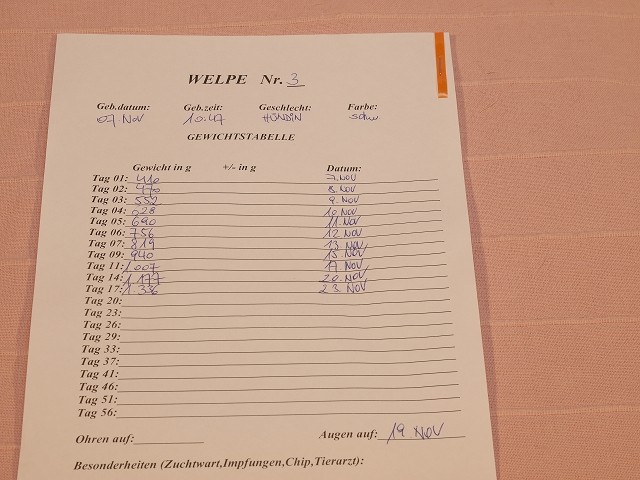 WELPE Nr. 3
Geb.datum: Geb.zeit: Geschlecht: Farbe:
07. NOV 10.47 HÜNDIN schw.
GEWICHTSTABELLE
Gewicht in g +/- in g Datum:
Tag 01: 410 7. NOV
Tag 02: 470 8. NOV
Tag 03: 552 9. NOV
Tag 04: 628 10. NOV
Tag 05: 690 11. NOV
Tag 06: 756 12 NOV
Tag 07: 819 13 NOV
Tag 09: 940 15 NOV
Tag 11: 1.007 17 NOV
Tag 14: 1.177 20. NOV
Tag 17: 1.336 23. NOV
Tag 20:
Tag 23:
Tag 26:
Tag 29:
Tag 33:
Tag 37:
Tag 41:
Tag 46:
Tag 51:
Tag 56:
Ohren auf: Augen auf: 19 NOV
Besonderheiten (Zuchtwart,Impfungen,Chip,Tierarzt):